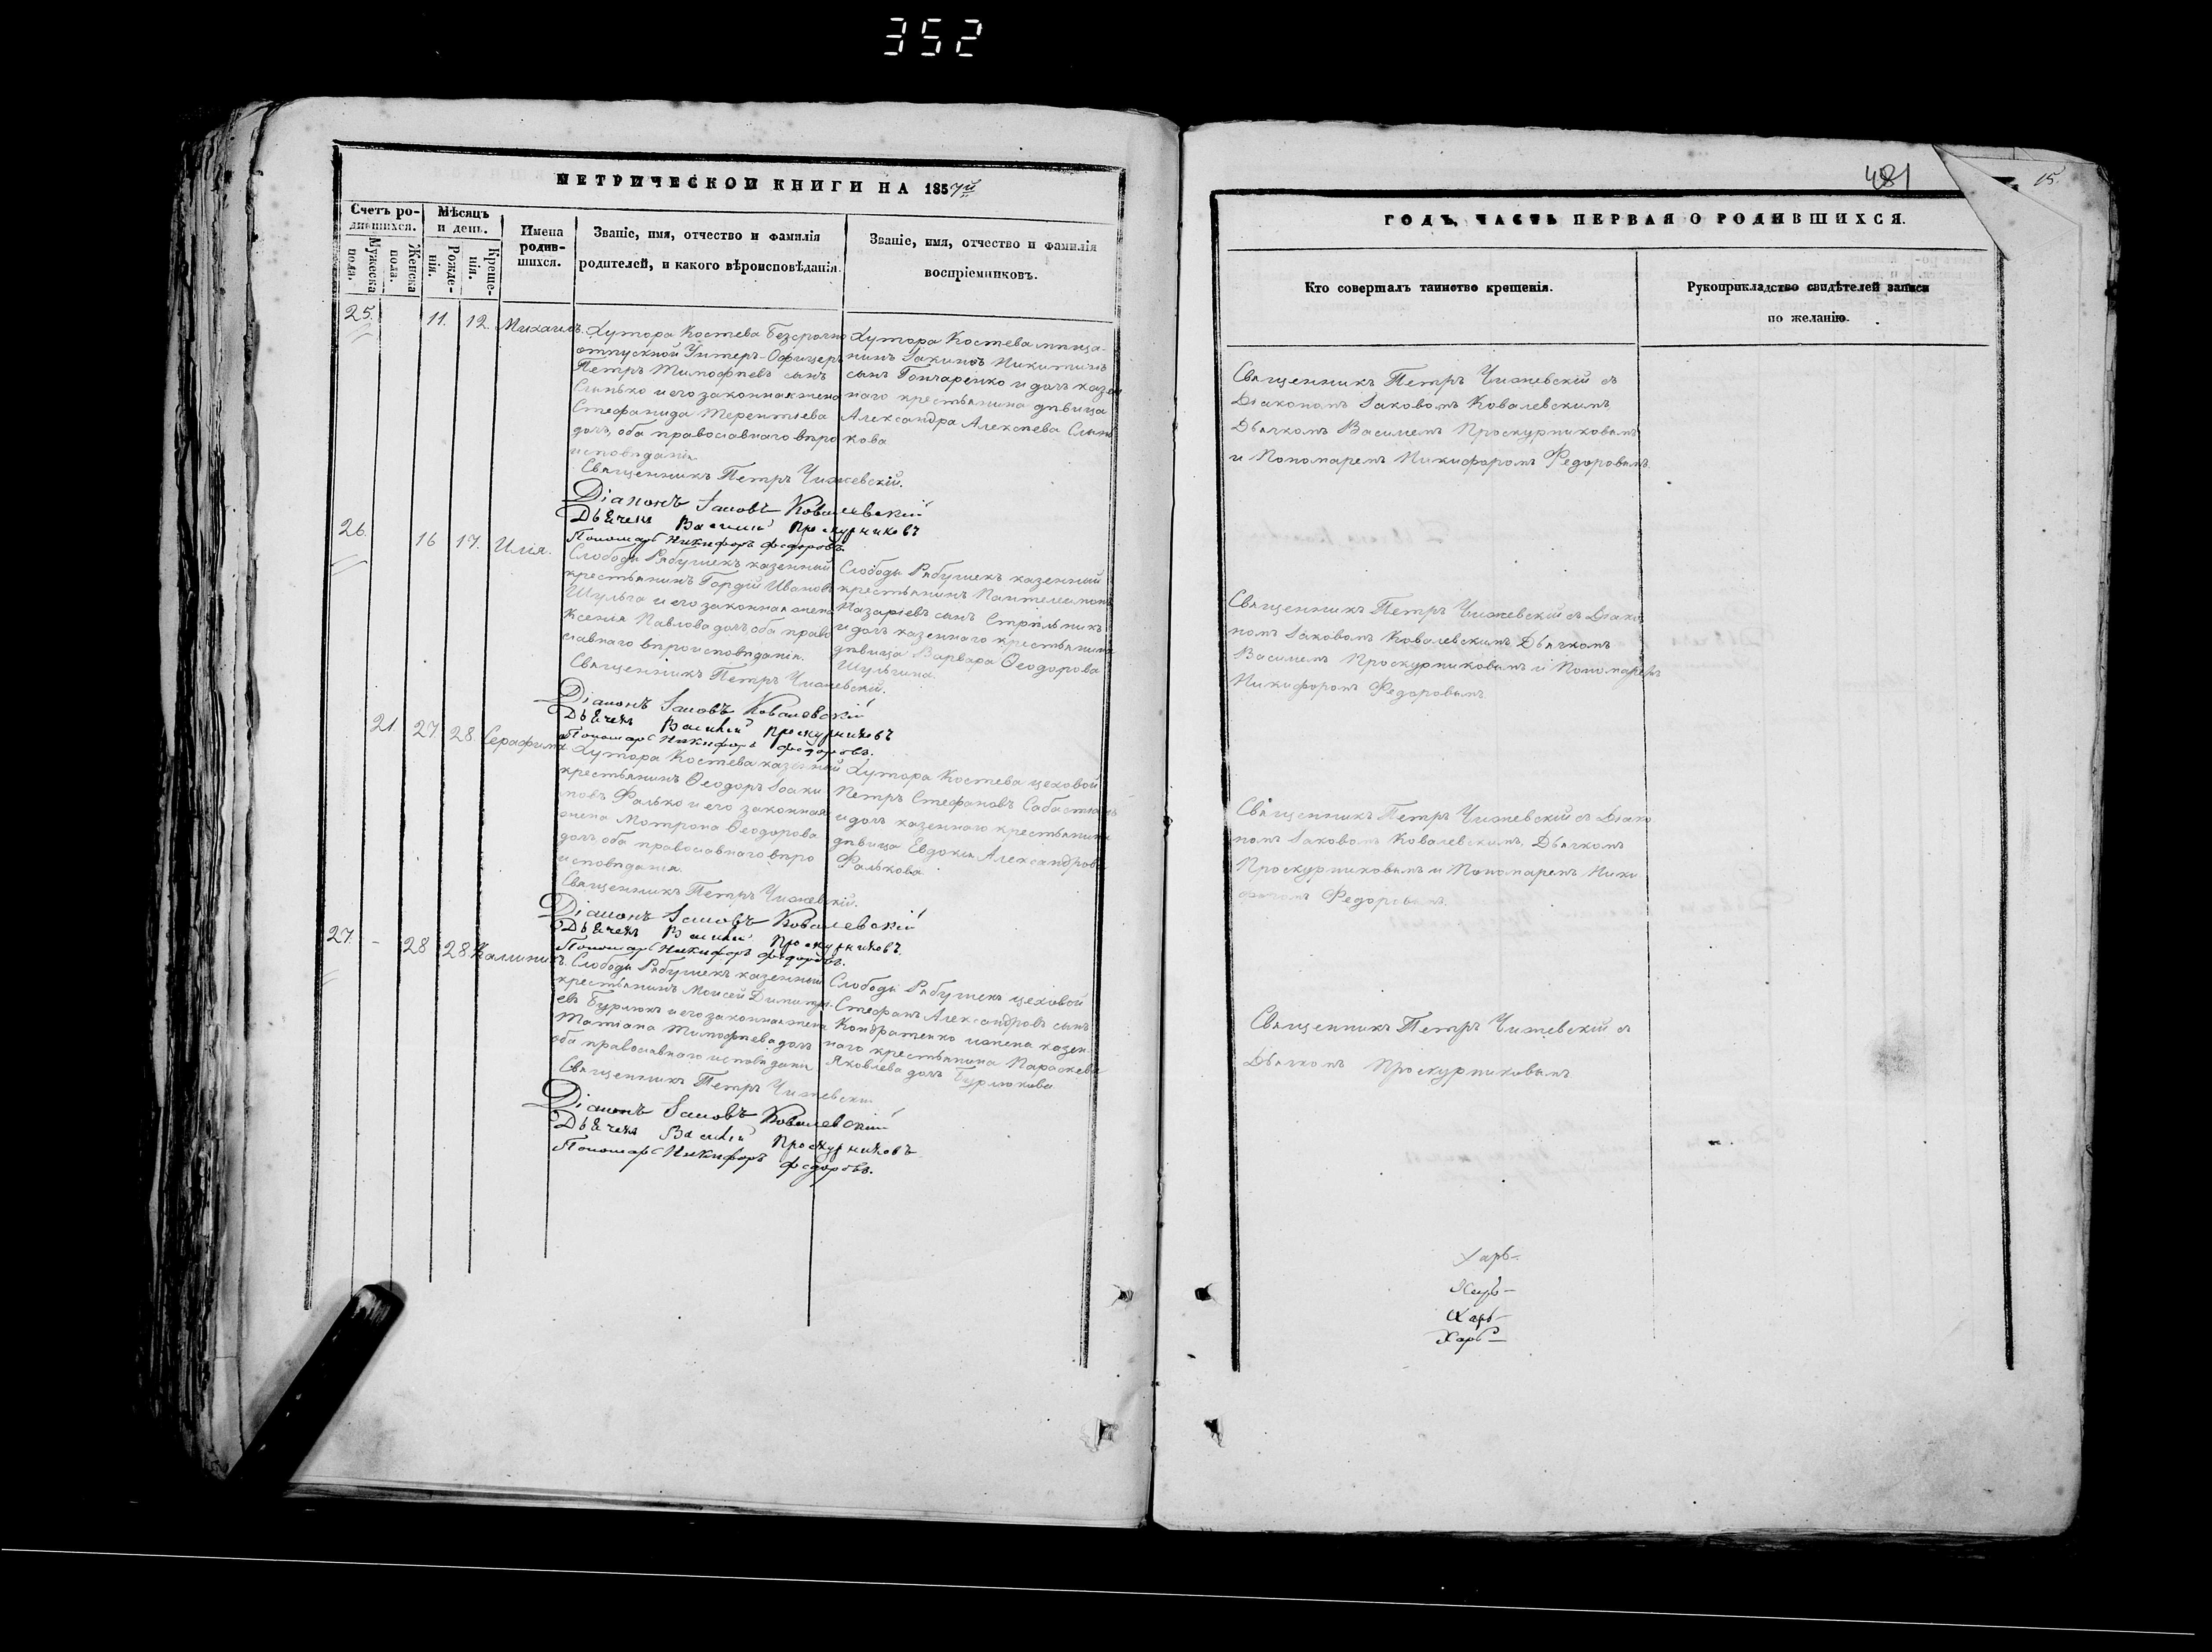 352
МЕТРИЧЕСКОЙ КНИГИ НА 1857й
Счетъ ро-
дившихся.
Мужеска
пола.
Женска
пола.
Мѣсяцъ
и день.
Рожде-
нія.
Креще-
нія.
Имена
родив-
шихся.
Званіе, имя, отчество и фамилія
родителей, и какого вѣроисповѣданія.
Званіе, имя, отчество и фамилія
воспріемниковъ.
25.
11.
12.
Михаилъ.
Хутора Костева безсрочно
отпускной Унтеръ-Офицеръ
Петръ Тимофѣевъ сынъ
Слинько и его законная жена
Стефанида Терентіева
дочь, оба православнаго вѣро
исповѣданія.
Хутора Костева мѣща-
нинъ Никитинъ
сынъ Гончаренко и дочь казен
наго крестьянина дѣвица
Александра Алексѣева Слинь
кова
Священникъ Петръ Чижевскій.
Діаконъ Іаковъ Ковалевскій
Дьячекъ Василій Проскурниковъ
Пономарь Никифоръ Федоровъ
26.
16
17.
Илія.
Слободы Рябушекъ казенный
крестьянинъ Гордій Ивановъ
Шульга и его законная жена
Ксенія Павлова дочь оба право
славнаго вѣроисповѣданія.
Слободы Рябушекъ казенный
крестьянинъ Пантелеимонъ
Назаріевъ сынъ Стрѣльникъ
и дочь казеннаго крестьянина
дѣвица Варвара Ѳеодорова
Шульгина.
Священникъ Петръ Чижевскій.
Діаконъ Іаковъ Ковалевскій
Дьячекъ Василій Проскурниковъ
Пономарь Никифоръ Федоровъ.
21
27
28.
Серафима
Хутора Костева казенный
крестьянинъ Ѳеодоръ Іоаки
мовъ Фалько и его законная
жена Матрона Ѳеодорова
дочь, оба православнаго вѣро
исповѣданія.
Хутора Костева цеховой
Петръ Стефановъ
и дочь казеннаго крестьянина
дѣвица Евдокія Александрова
Фалькова
Священникъ Петръ Чижевскій.
Діаконъ Іаковъ Ковалевскій
Дьячекъ Василій Проскурниковъ.
Пономарь Никифоръ Федоровъ.
27.
-
28
28
Калиникъ.
Слободы Рябушекъ казенный
крестьянинъ Моисей Димитрі-
евъ Бурлюкъ и его законная жена
Татіана Тимофѣева дочь
оба православнаго исповѣданія
Слободы Рябушекъ цеховой
Стефанъ Александровъ сынъ
Кондратенко и жена казен
наго крестьянина Параскева
Яковлева дочь Бурлюкова
Священникъ Петръ Чижевскій
Діаконъ Іаковъ Ковалевскій
Дьячекъ Василій Проскурниковъ
Пономарь Никифоръ Федоровъ.
481
15.
ГОДЪ, ЧАСТЬ ПЕРВАЯ О РОДИВШИХСЯ.
Кто совершалъ таинство крещенія.
Рукоприкладство свидѣтелей записи
по желанію.
Священникъ Петръ Чижевскій съ
Діакономъ Іаковомъ Ковалевскимъ,
Дьячкомъ Василіемъ Проскурниковымъ
и Пономаремъ Никифоромъ Федоровымъ.
Священникъ Петръ Чижевскій съ Діако
номъ Іаковомъ Ковалевскимъ Дьячкомъ
Василіемъ Проскурниковымъ и Пономаремъ
Никифоромъ Федоровымъ.
Священникъ Петръ Чижевскій съ Діако
номъ Іаковомъ Ковалевскимъ, Дьячкомъ
Проскурниковымъ и Пономаремъ Ники
форомъ Федоровымъ.
Священникъ Петръ Чижевскій съ
Дьячкомъ Проскурниковымъ
Харь-
Харь-
Харь-
Харь-